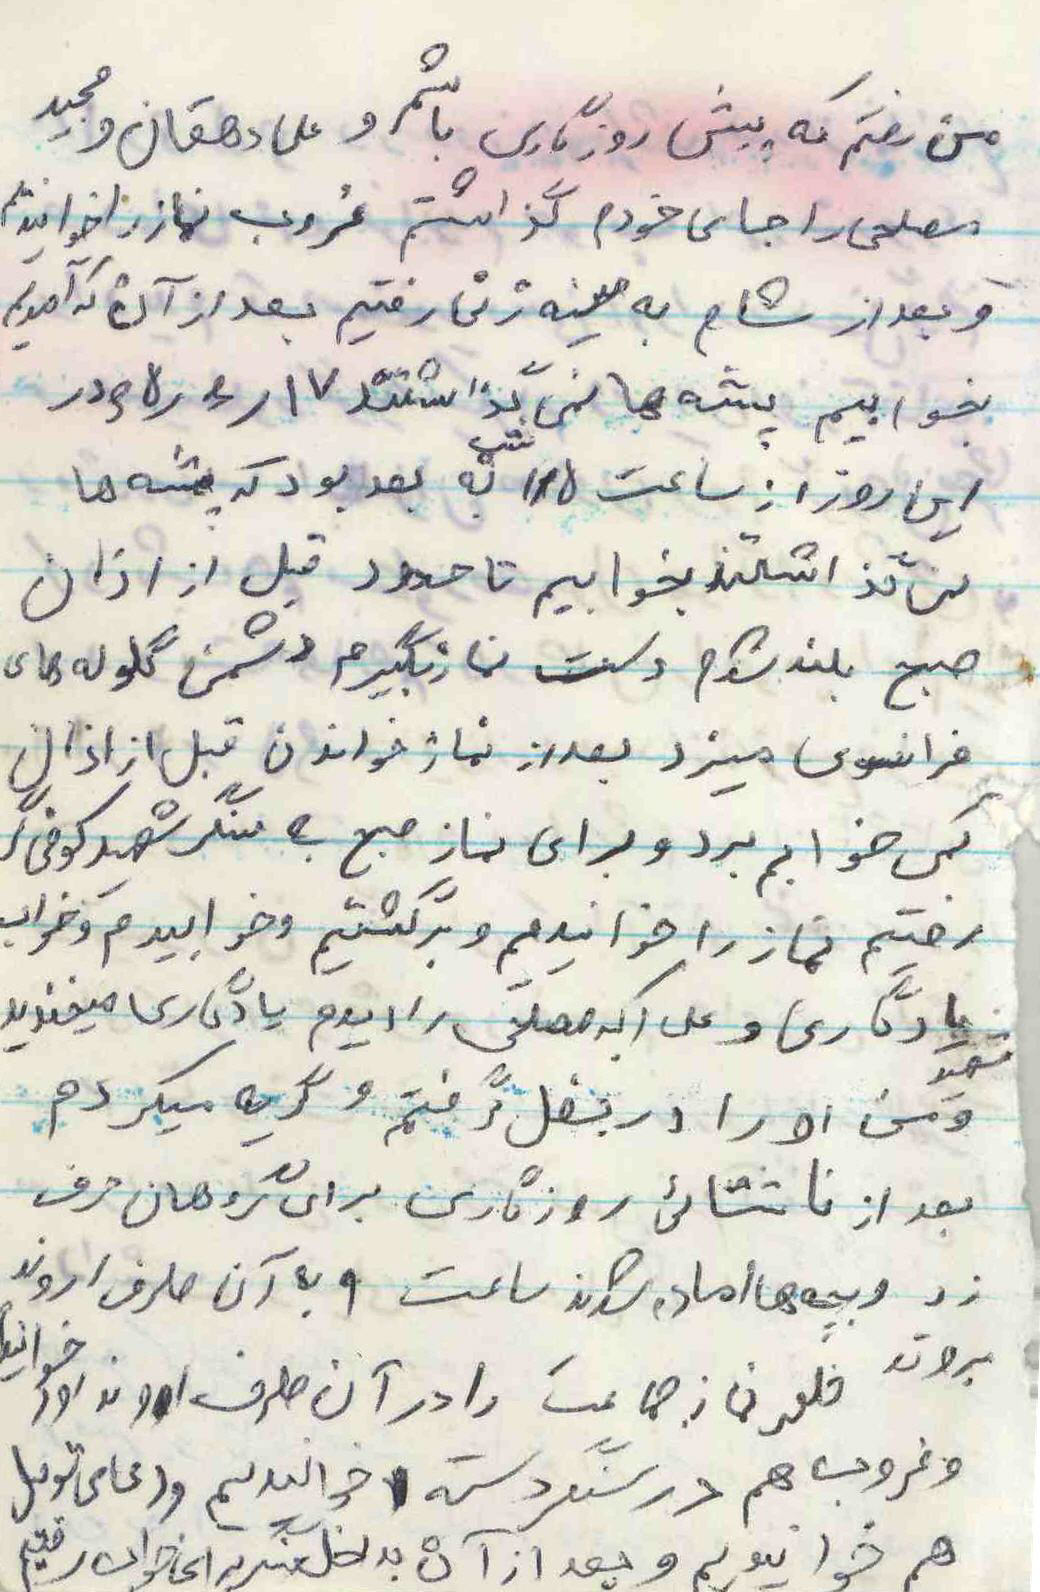 من رفتم که پیش روزگاری باشم و علی دهقان و مجید
مصلحی را جای خودم گذاشتم غروب نماز را خواندیم
و بعد از شام به سینه زنی رفتیم بعد از آن که آمدیم
بخوابیم پشه ها نمی گذاشتند ۱۷ر۴ر۶۵ در
این روز از ساعت ۱۱/۵ شب به بعد بود که پشه ها
نمی گذاشتند بخوابیم تا حدود قبل از اذان
صبح بلند شدم دست نماز بگیرم دشمن گلوله های
فرانسوی میزد بعد از نماز خواندن قبل از اذان
کمی خوابم برد و برای نماز صبح به سنگر شهید کوفی گر
رفتیم نماز را خواندیم و برگشتیم و خوابیدم و خواب
یادگاری و علی اکبر مصلحی را دیدم یادگاری میخندید
شهید
و من او را در بغل گرفتم و گریه میکردم
بعد از ناشتائی روزگاری برای گروهان حرف
زد و بچه ها اماده شدند ساعت ۹ به آن طرف اروند
بروند ظهر نماز جماعت را در آن طرف اروند خواندیم
و غروب هم در سنگر دسته ۱ خواندیم و دعای توسل
هم خواندیم و بعد از آن به داخل سنگر برای خواب رفتیم